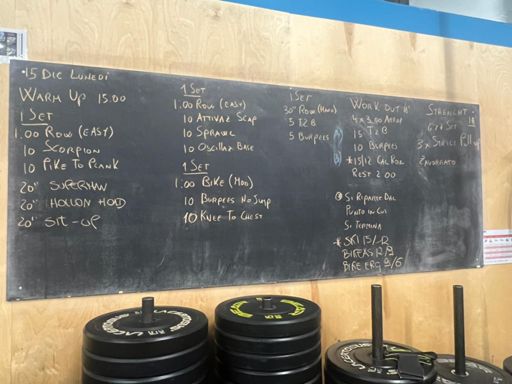 ·15 DIC LUNEDI
WARM UP 15.00
1 SET
1.00 ROW (EASY)
10 SCORPION
10 PIKE TO PLANK
20" SUPERMAN
20" HOLLOW HOLD
20" SIT-UP
1 SET
1:00 ROW (EASY)
10 ATTIVAZ SCAP
10 SPRAWL
10 OSCILLAZ BASE
1 SET
1:00 BIKE (MOD)
10 BURPEES NO JUMP
10 KNEE TO CHEST
1 SET
30" ROW (HARD)
5 T2B
5 BURPEES
WORK OUT
4 x 3.00 AMRAP
15 T2B
10 BURPEES
*15/12 CAL ROW
REST 2.00
SI RIPARTE DAL
PUNTO IN CUI
SI TERMINA
* SKI 15/12
BIKE ERG 9/6
STRENGHT
3 x STRICT PULL UP